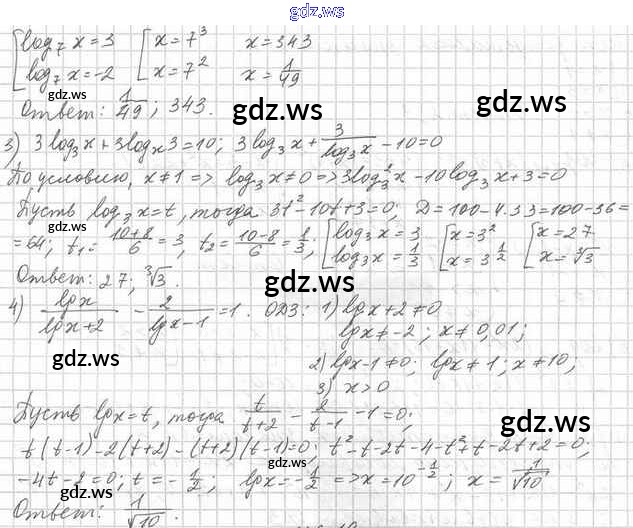 gdz.ws
[ log₇ x = 3 [ x = 7³ x = 343
[ log₇ x = -2 [ x = 7² x = 1/49
Ответ: 1/49; 343.
gdz.ws
gdz.ws
gdz.ws
3) 3log₃x + 3logₓ3 = 10; 3log₃x + 3/log₃x - 10 = 0
По условию, x ≠ 1 => log₃x ≠ 0 => 3log₃²x - 10log₃x + 3 = 0
Пусть log₃x = t, тогда 3t² - 10t + 3 = 0; D = 100 - 4·3·3 = 100 - 36 =
= 64; t₁ = (10+8)/6 = 3, t₂ = (10-8)/6 = 1/3; [ log₃x = 3 [ x = 3² [ x = 27
[ log₃x = 1/3 [ x = 3^(1/2) [ x = ∛3
Ответ: 27; ∛3.
gdz.ws
gdz.ws
4) lgx/(lgx+2) - 2/(lgx-1) = 1. ОДЗ: 1) lgx + 2 ≠ 0
lgx ≠ -2; x ≠ 0,01;
gdz.ws
2) lgx - 1 ≠ 0; lgx ≠ 1; x ≠ 10;
3) x > 0
Пусть lgx = t, тогда t/(t+2) - 2/(t-1) - 1 = 0;
gdz.ws
gdz.ws
t(t-1) - 2(t+2) - (t+2)(t-1) = 0; t² - t - 2t - 4 - t² + t - 2t + 2 = 0;
-4t - 2 = 0; t = -1/2; lgx = -1/2 => x = 10^(-1/2); x = 1/√10
gdz.ws
gdz.ws
Ответ: 1/√10.